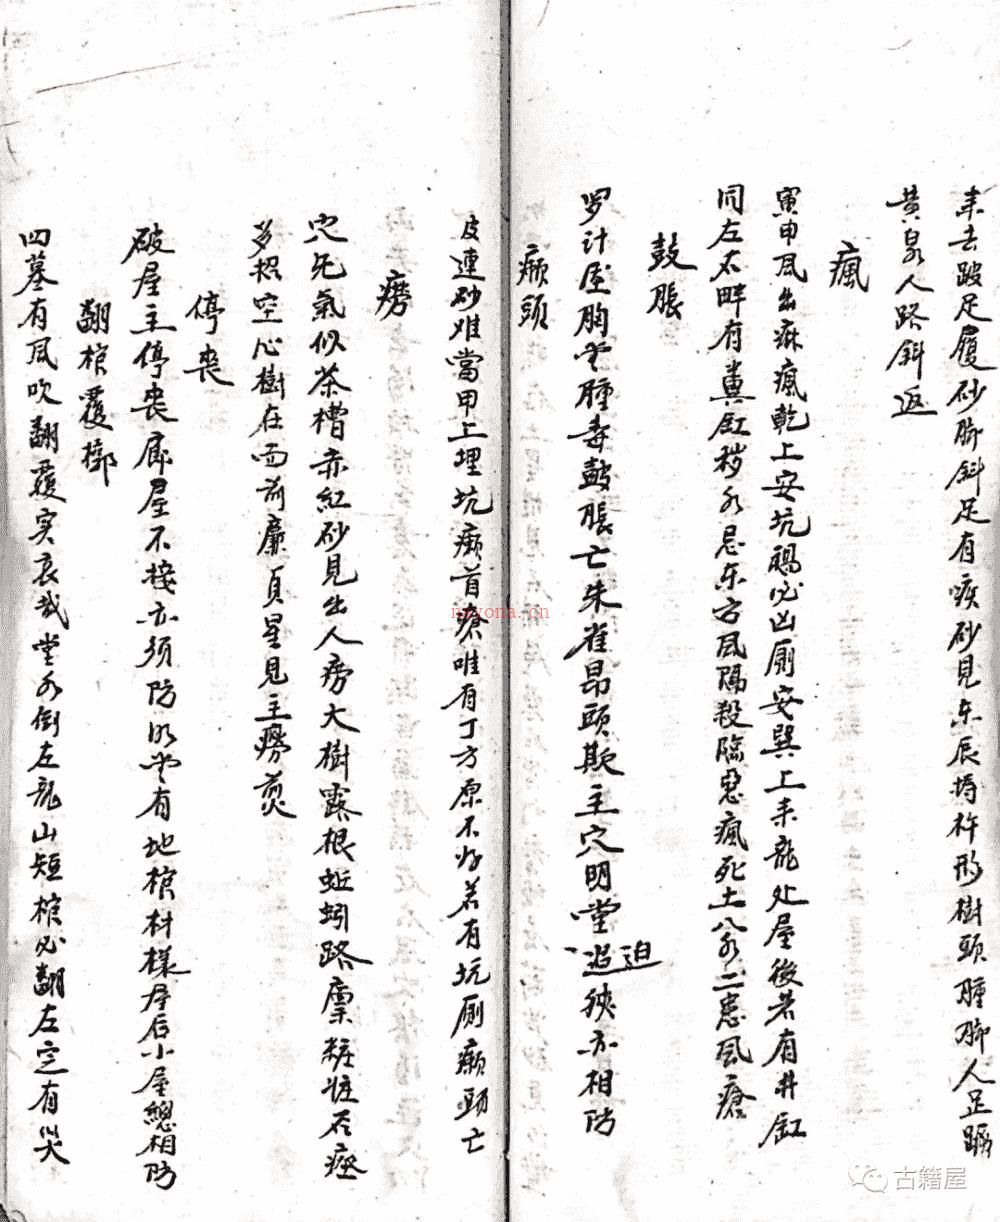 来去跛足履砂脚斜足有疾砂見东辰埓杵形樹頭腫脚人足蹋
黄泉人路斜返
瘋
寅申風出痳瘋乾上安坑禍必凶厠安巽上来龍处屋後若有井缸
同左右畔有糞缸秽水忌东方風隔殺臨惡瘋死土八水二患風瘡
鼓脹
罗计屋胸堂腫毒鼓脹亡朱雀昂頭欺主穴明堂迫狹亦相防
癞頭
皮連砂难當甲上埋坑癞首瘡唯有丁方原不好若有坑厠癞頭亡
癆
穴死氣似茶槽赤紅砂見出人癆大樹露根蚯蚓路禀粧性石瘂
多招空心樹在面前廉貞星見主癆煎
停丧
破屋主停丧廊屋不接亦须防明堂有地棺材樣屋后小屋總相防
翻棺覆槨
四墓有風吹翻覆实哀哉堂水倒左龍山短棺必翻左定有灾
nayona.cn
古籍屋